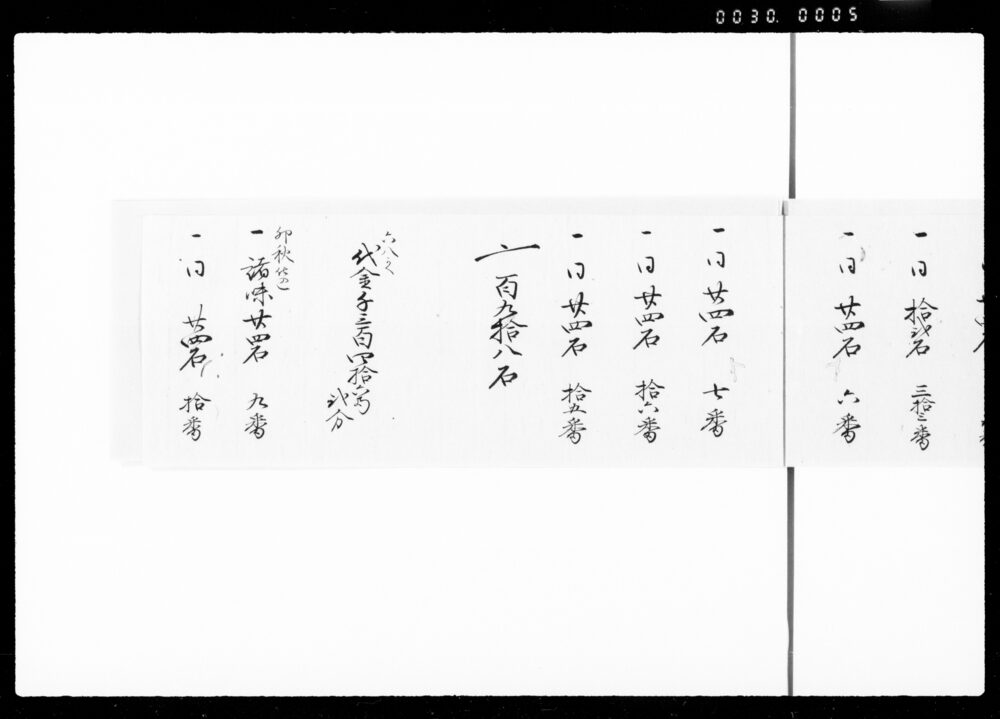 0030. 0005
一 同 拾弐石 三拾三番
一 同 廿四石 六番
一 同 廿四石 七番
一 同 廿四石 拾六番
一 同 廿四石 拾五番
〆 百九拾八石
代金千三百四拾六両
弐分
卯秋仕込
一 諸味廿四石 九番
一 同 廿四石 拾番